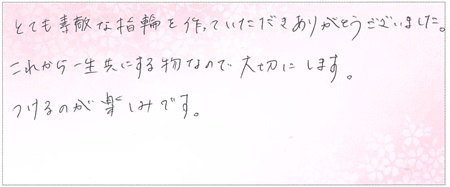 とても素敵な指輪を作っていただきありがとうございました。
これから一生共にする物なので大切にします。
つけるのが楽しみです。